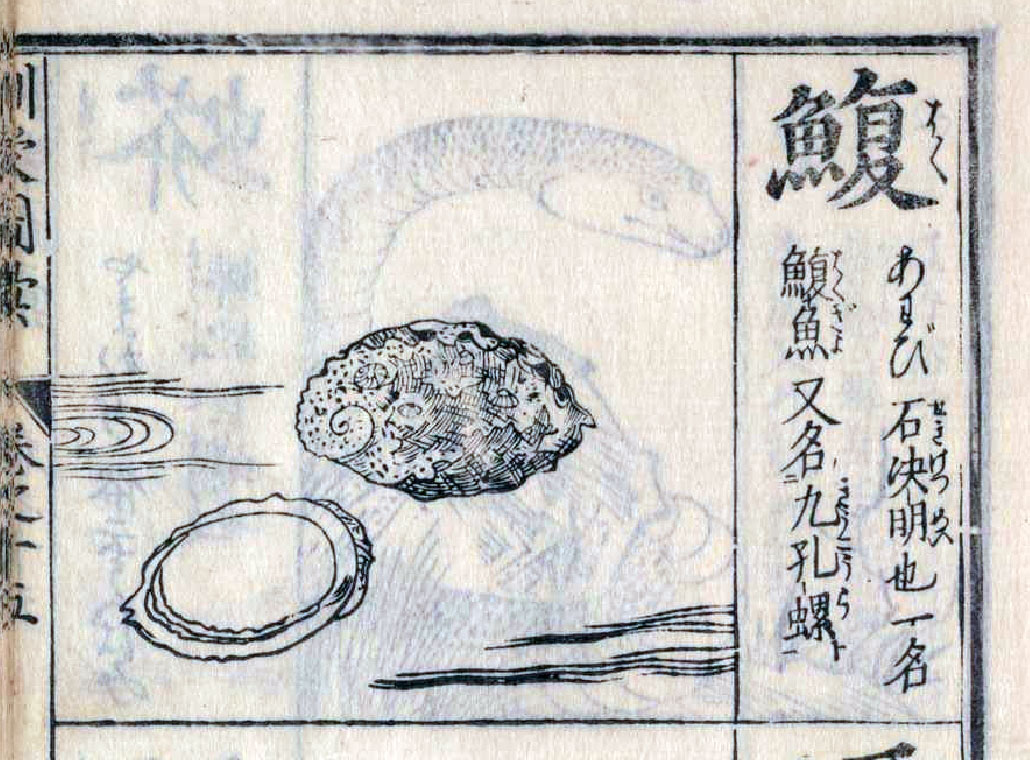 鰒 はく
あわび 石決明也一名 せきけつめい
鰒魚又名九孔螺 はくぎよ きうこうら
訓蒙圖彙 巻之十五